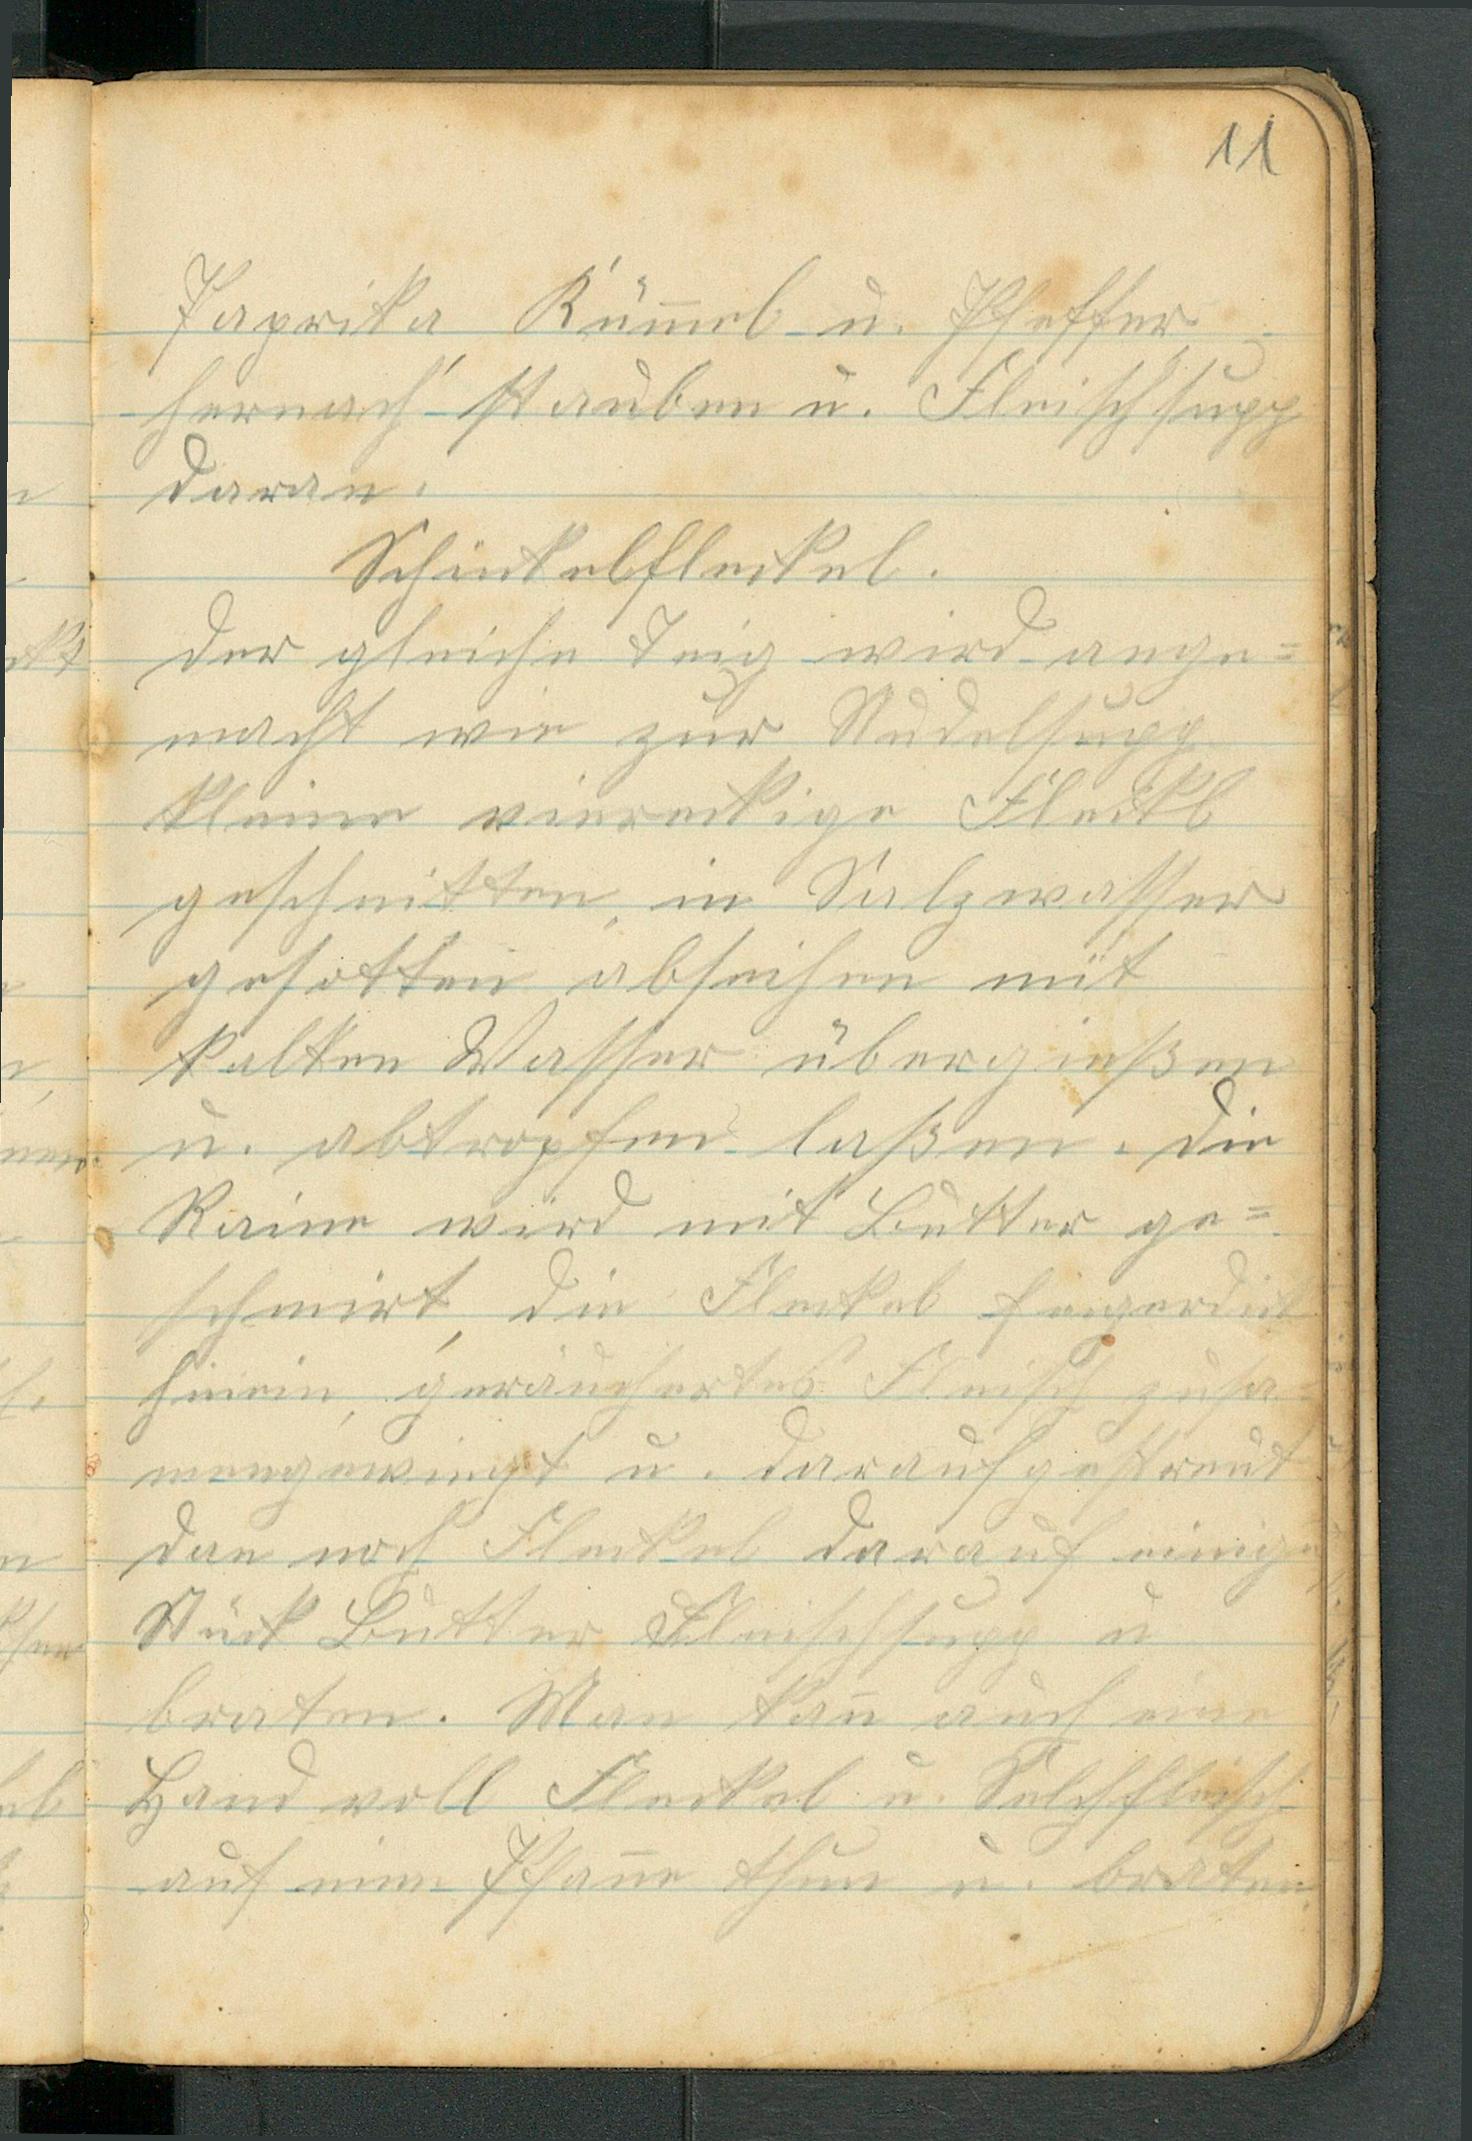 11
Paprika Kümmel u. Pfeffer
hernach stauben u. Fleischsupp
daran.
Schinkelfleckel.
Der gleiche Teig wird ange=
macht wie zur Nudelsupp
kleine viereckige Fleckl
geschnitten, in Salzwasser
gesotten abseihen mit
kalten Wasser übergießen
u. abtropfen laßen. Die
Raine wird mit Butter ge=
schmirt, die Fleckel fingerdick
hinein, geräuchertes Fleisch zusa=
mengewiegt u. daraufgestreut
dan noch Fleckel darauf einige
Stück Butter Fleischsupp u
braten. Man kan̄ auch eine
Hand voll Fleckel u. Selchfleisch
auf eine Pfan̄e thun u. braten.